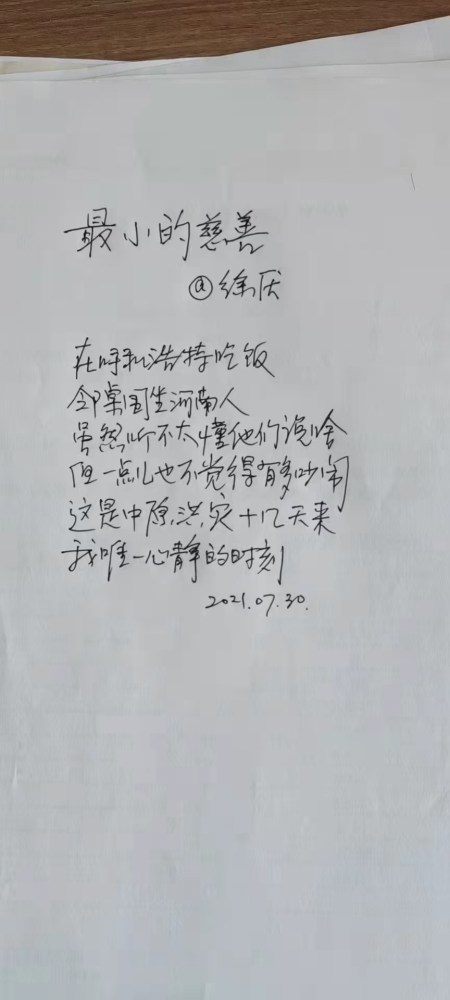 最小的慈善
@徐厌
在呼和浩特吃饭
邻桌围坐河南人
虽然听不太懂他们说啥
但一点儿也不觉得有多吵闹
这是中原洪灾十几天来
我唯一心静的时刻
2021.07.30.